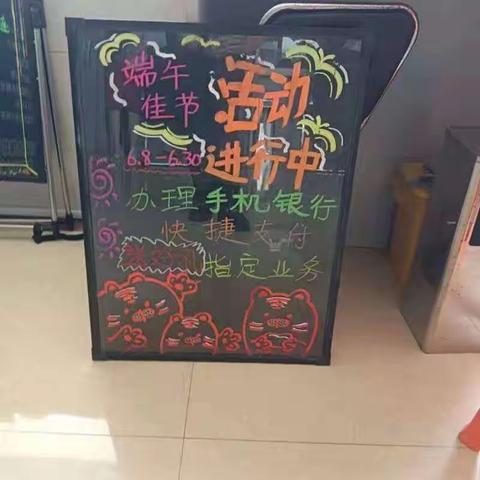 端午
佳节
活动
6.8-6.30
进行中
办理手机银行
快捷支付
指定业务